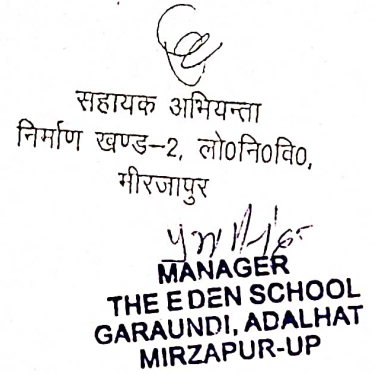 सहायक अभियन्ता
निर्माण खण्ड-2, लो0नि0वि0,
मीरजापुर
MANAGER
THE EDEN SCHOOL
GARAUNDI, ADALHAT
MIRZAPUR-UP